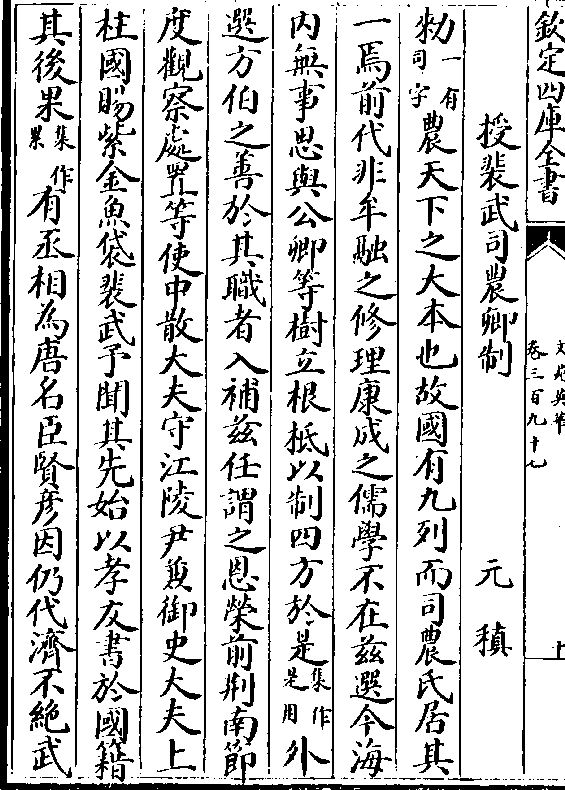 欽定四庫全書
文苑英華
卷三百九十七
十
授裴武司農卿制 元稹
勅一有司字農天下之大本也故國有九列而司農氏居其
一焉前代非牟融之修理康成之儒學不在兹選今海
内無事思與公卿等樹立根柢以制四方於是集作是用外
選方伯之善於其職者入補兹任謂之恩榮前荆南節
度觀察處置等使中散大夫守江陵尹兼御史大夫上
柱國賜紫金魚袋裴武予聞其先始以孝友書於國籍
其後果集作累有丞相為唐名臣賢彦因仍代濟不絶武